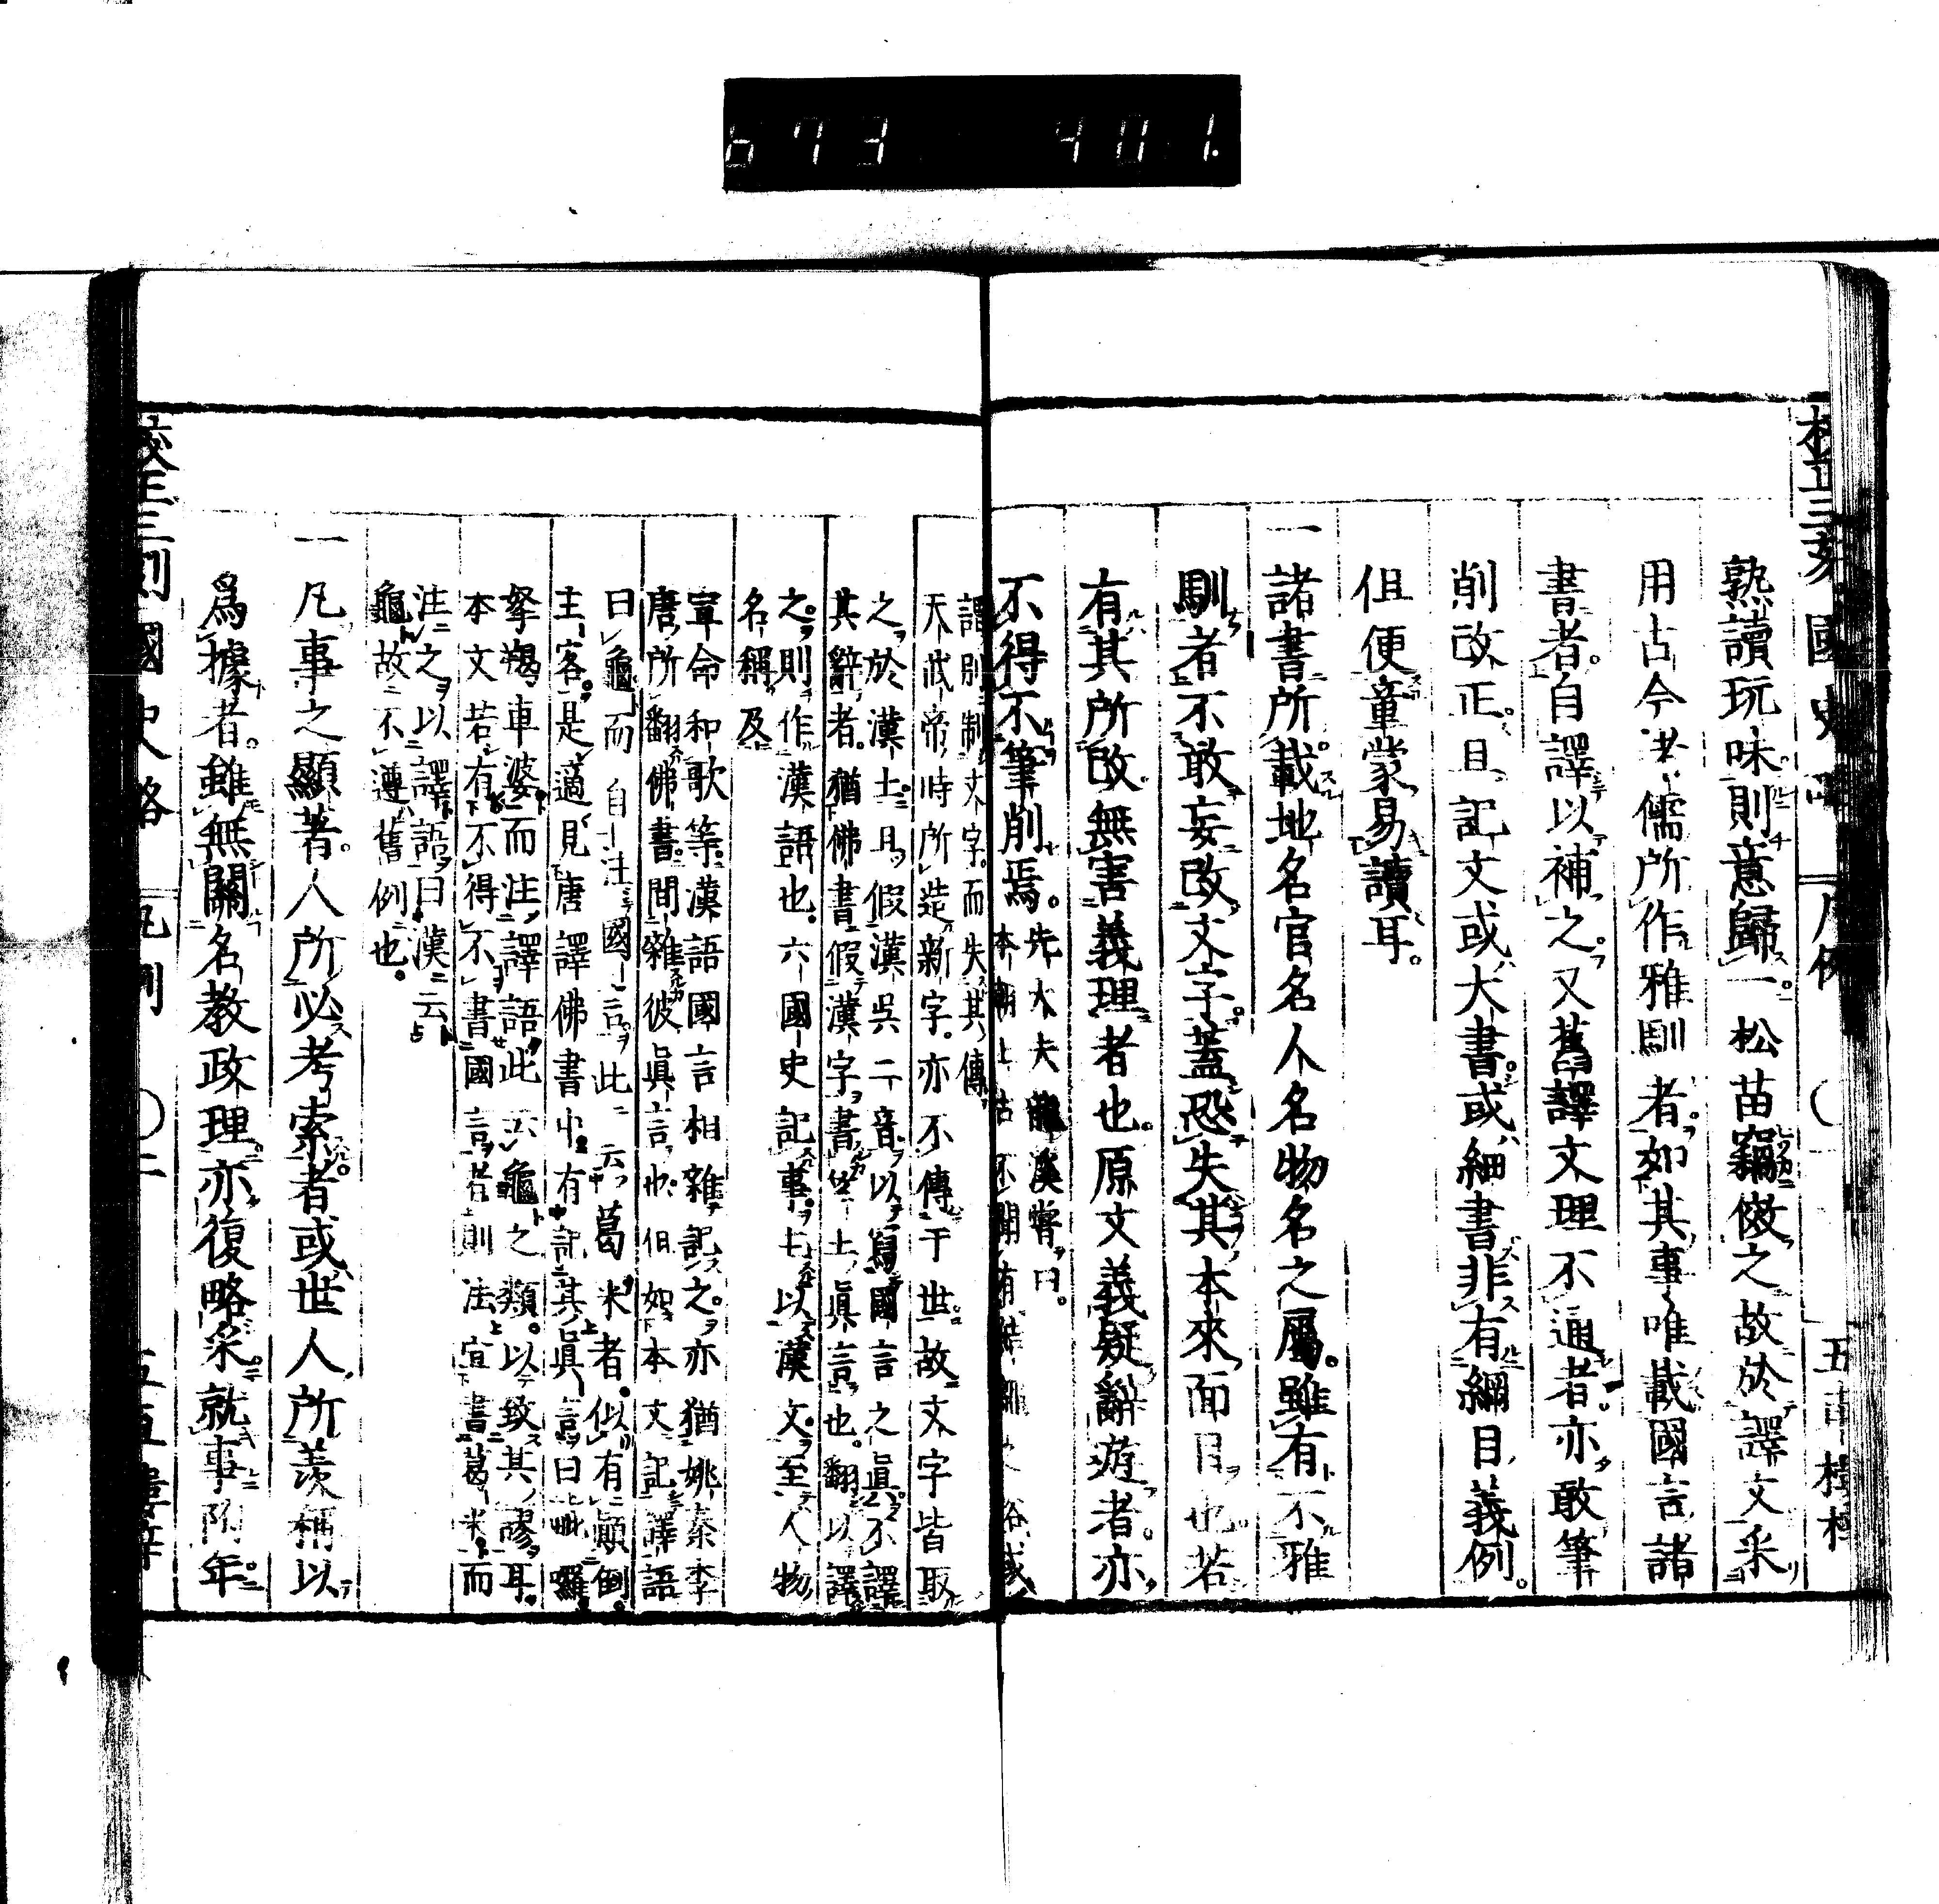 673 401.
熟讀玩味則意歸一。松苗竊倣之故於譯文采
用古今老儒所作雅馴者。如其事唯載國言諸
書者。自譯以補之。又舊譯文理不通者亦敢筆
削改正。且記文或大書。或細書非有綱目義例。
但便童蒙易讀耳。
一諸書所載地名官名人名物名之屬。雖有不雅
馴者不敢妄改文字。蓋恐失其本來面目也。若
有其所改無害義理者也。原文義疑辭遊者。亦
不得不筆削焉。先大夫龍溪嘗曰。
本朝上古不聞有結繩之俗或
謂別制文字。而失其傳
天武帝時所造新字。亦不傳于世。故文字皆取
之於漢土。且假漢吳二音。以寫國言之眞。不譯
其辭者。猶佛書假漢字書竺土眞言也。翻以譯
之。則作漢語也。六國史記事。以漢文。至人物
名稱及
宣命和歌等。漢語國言相雜記之。亦猶姚秦李
唐所翻佛書。間雜彼眞言也。但如本文記譯語
曰龜而自注國言。此云葛米者。似有顚倒。
主客。是適見唐譯佛書中有記其眞言曰毗囉
拏羯車婆而注譯語。此云龜之類。以致其謬耳。
本文若有不得不書國言者則法宜書葛米而
注之以譯語曰漢云
龜故不遵舊例也。
一凡事之顯著。人所必考索者。或世人所羨稱以
爲據者。雖無關名教政理。亦復略采就事附年。
國史略 凡例 〇二 五車樓梓